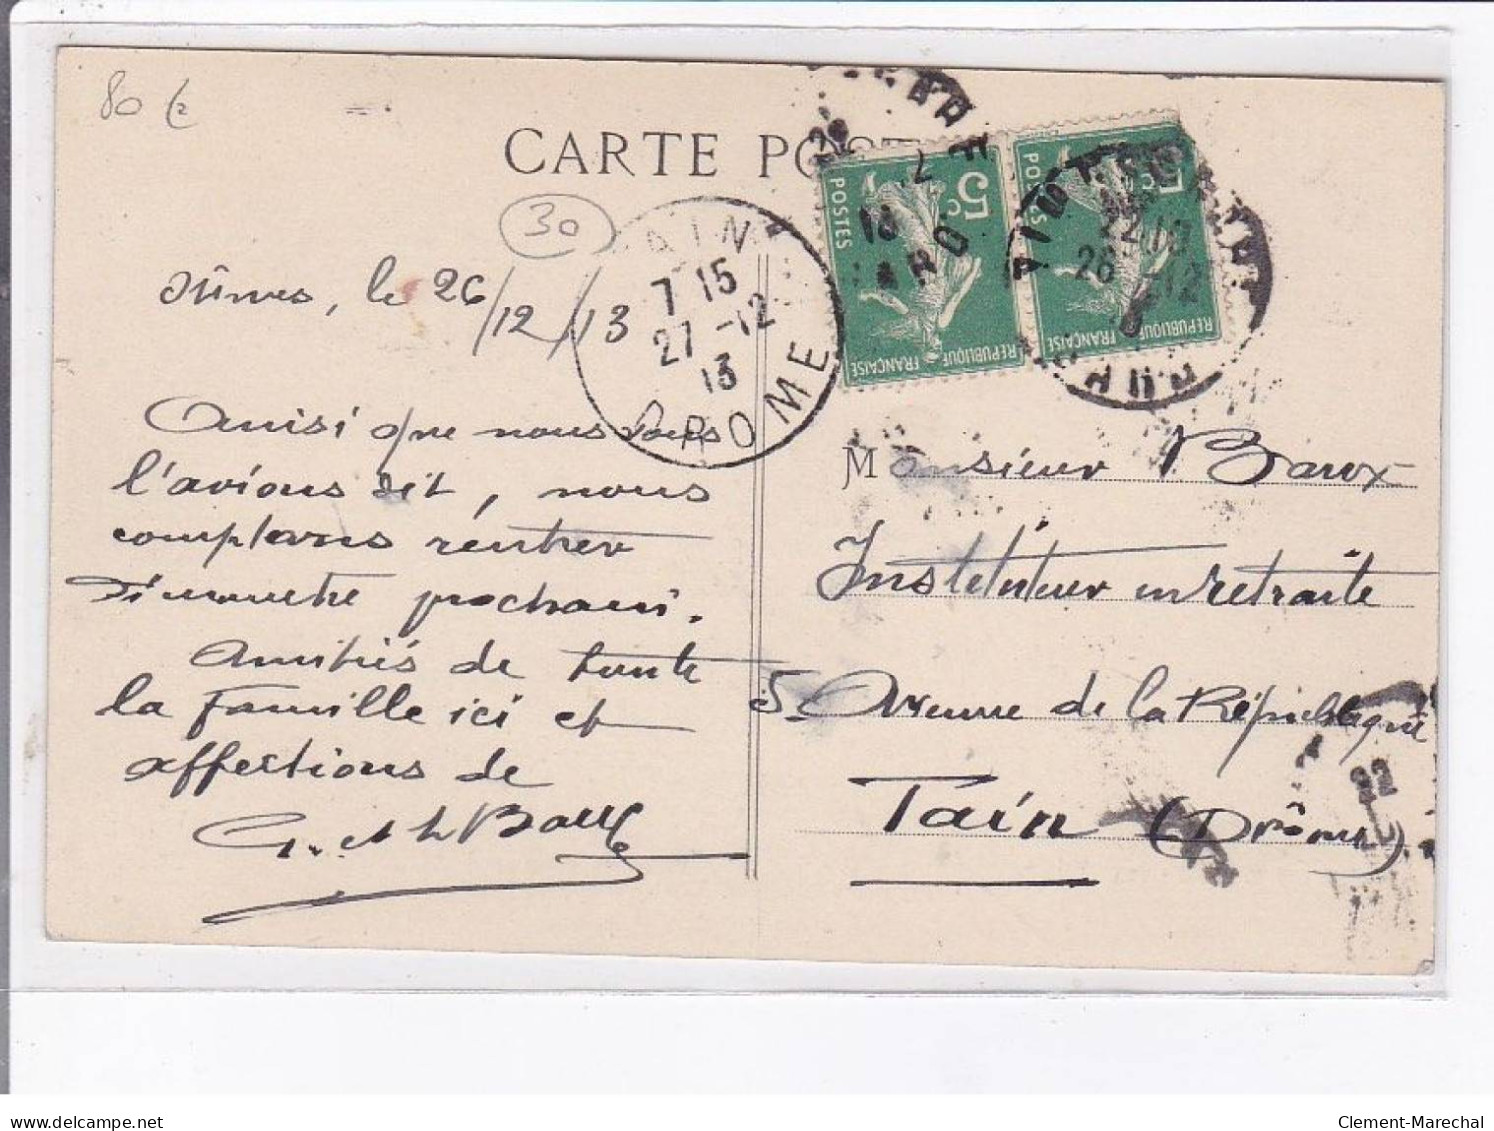 80 €
CARTE POST
30
Nîmes, le 26/12/13
TAIN
7 15
27 -12
13
DROME
5c
POSTES
REPUBLIQUE FRANÇAISE
5c
POSTES
REPUBLIQUE FRANÇAISE
22 10
26 -12
GARD
Ainsi que nous vous
l'avions dit, nous
comptons rentrer
dimanche prochain.
Amitiés de toute
la famille ici et
affections de
Monsieur Baux
Instituteur en retraite
5 Avenue de la République
Tain (Drôme)
22
www.delcampe.net
Clement-Marechal